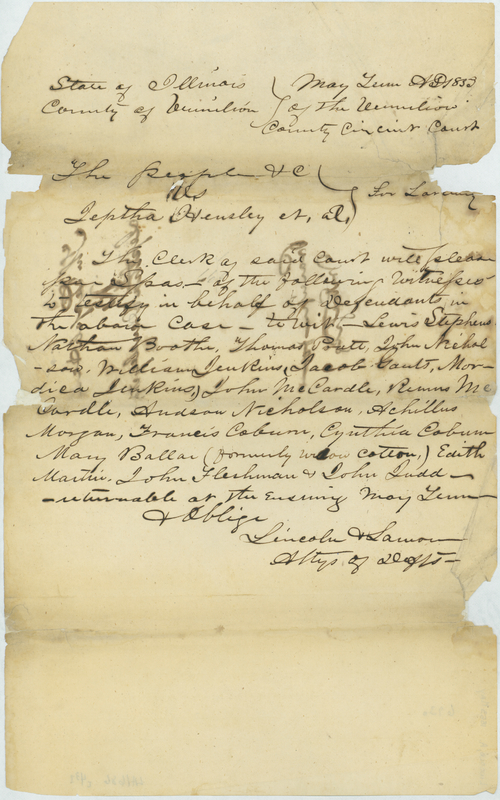 State of Illinois ( May Term AD 1853
County of Vermilion ( of the Vermilion
County Circuit Court
The People &C
vs ) For Larceny
Jeptha Hensley et, al,
The Clerk of said Court will please
of the following Witnesses
to testify in behalf of Defendants in
the above Case - to wit - Lewis Stephens
Nathan Boothe, Thomas Pratt, John Nichol
-son, William Jenkins, Jacob Gants, Mor-
dica Jenkins, John McCardle, Remus Mc
Cardle, Hudson Nicholson, Achillus
Morgan, Francis Coburn, Cynthia Coburn
Mary Ballar (formerly Widow Cotton,) Edith
Martin, John Fleshman & John Judd -
- returnable at the Ensuing May Term
& Oblige
Lincoln & Lamon
Attys. of Defts -